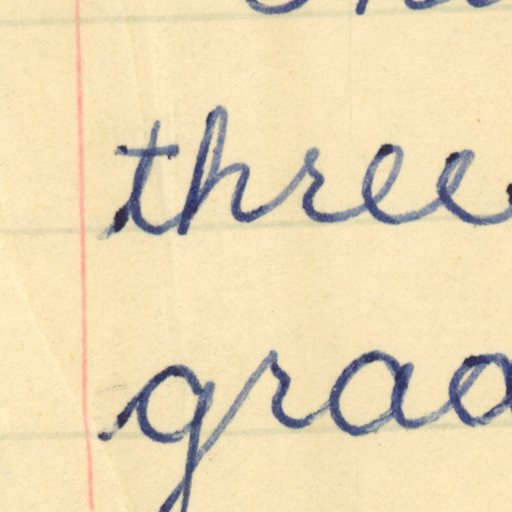 three
gra